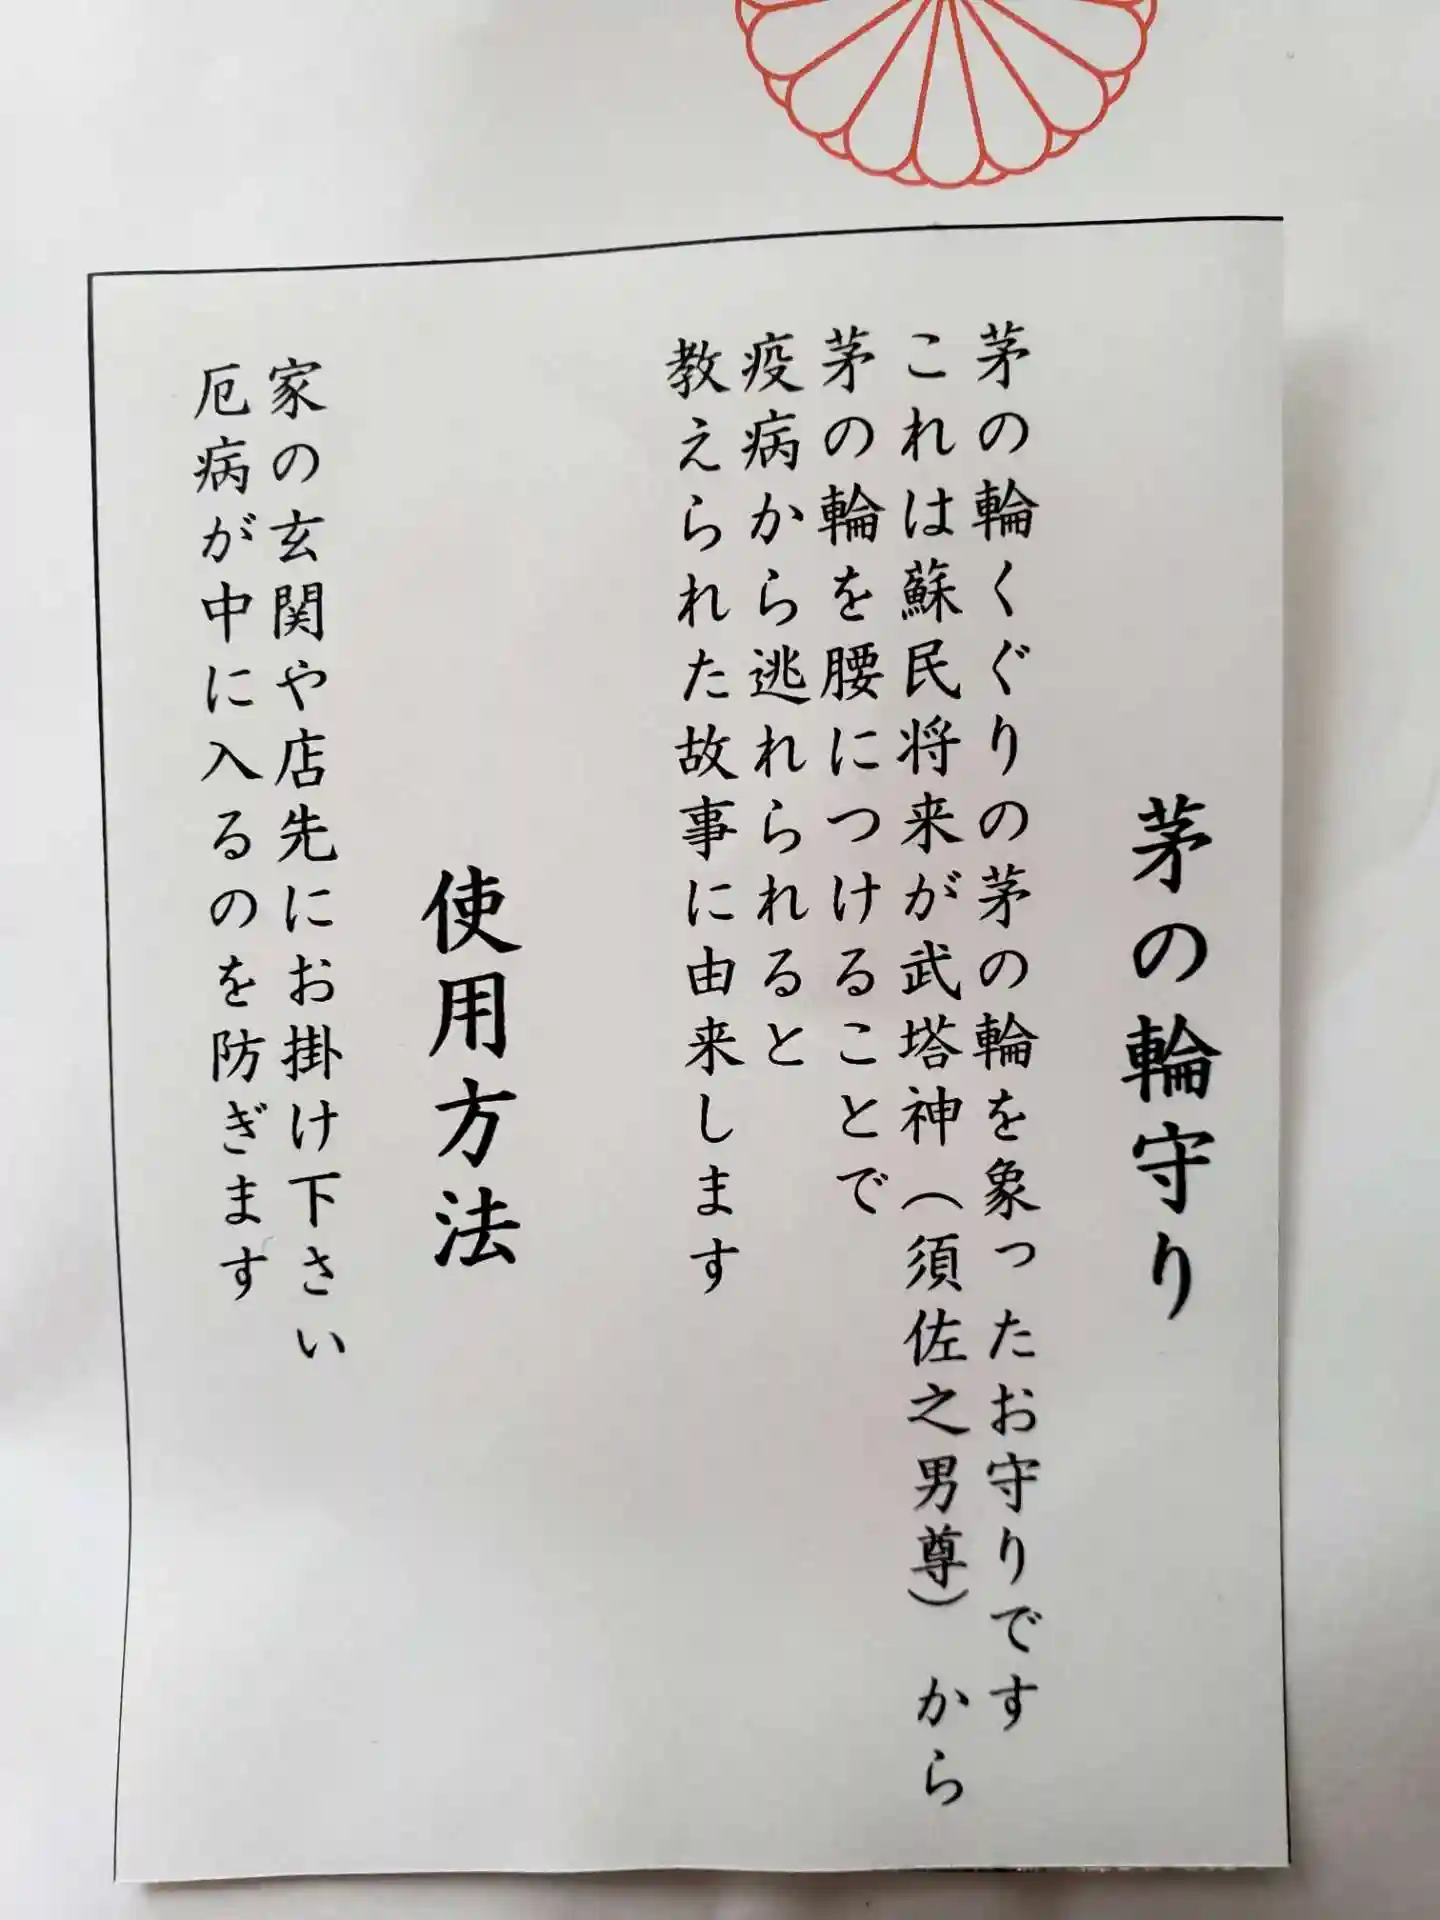 茅の輪守り
茅の輪くぐりの茅の輪を象ったお守りです
これは蘇民将来が武塔神(須佐之男尊)から
茅の輪を腰につけることで
疫病から逃れられると
教えられた故事に由来します
使用方法
家の玄関や店先にお掛け下さい
厄病が中に入るのを防ぎます